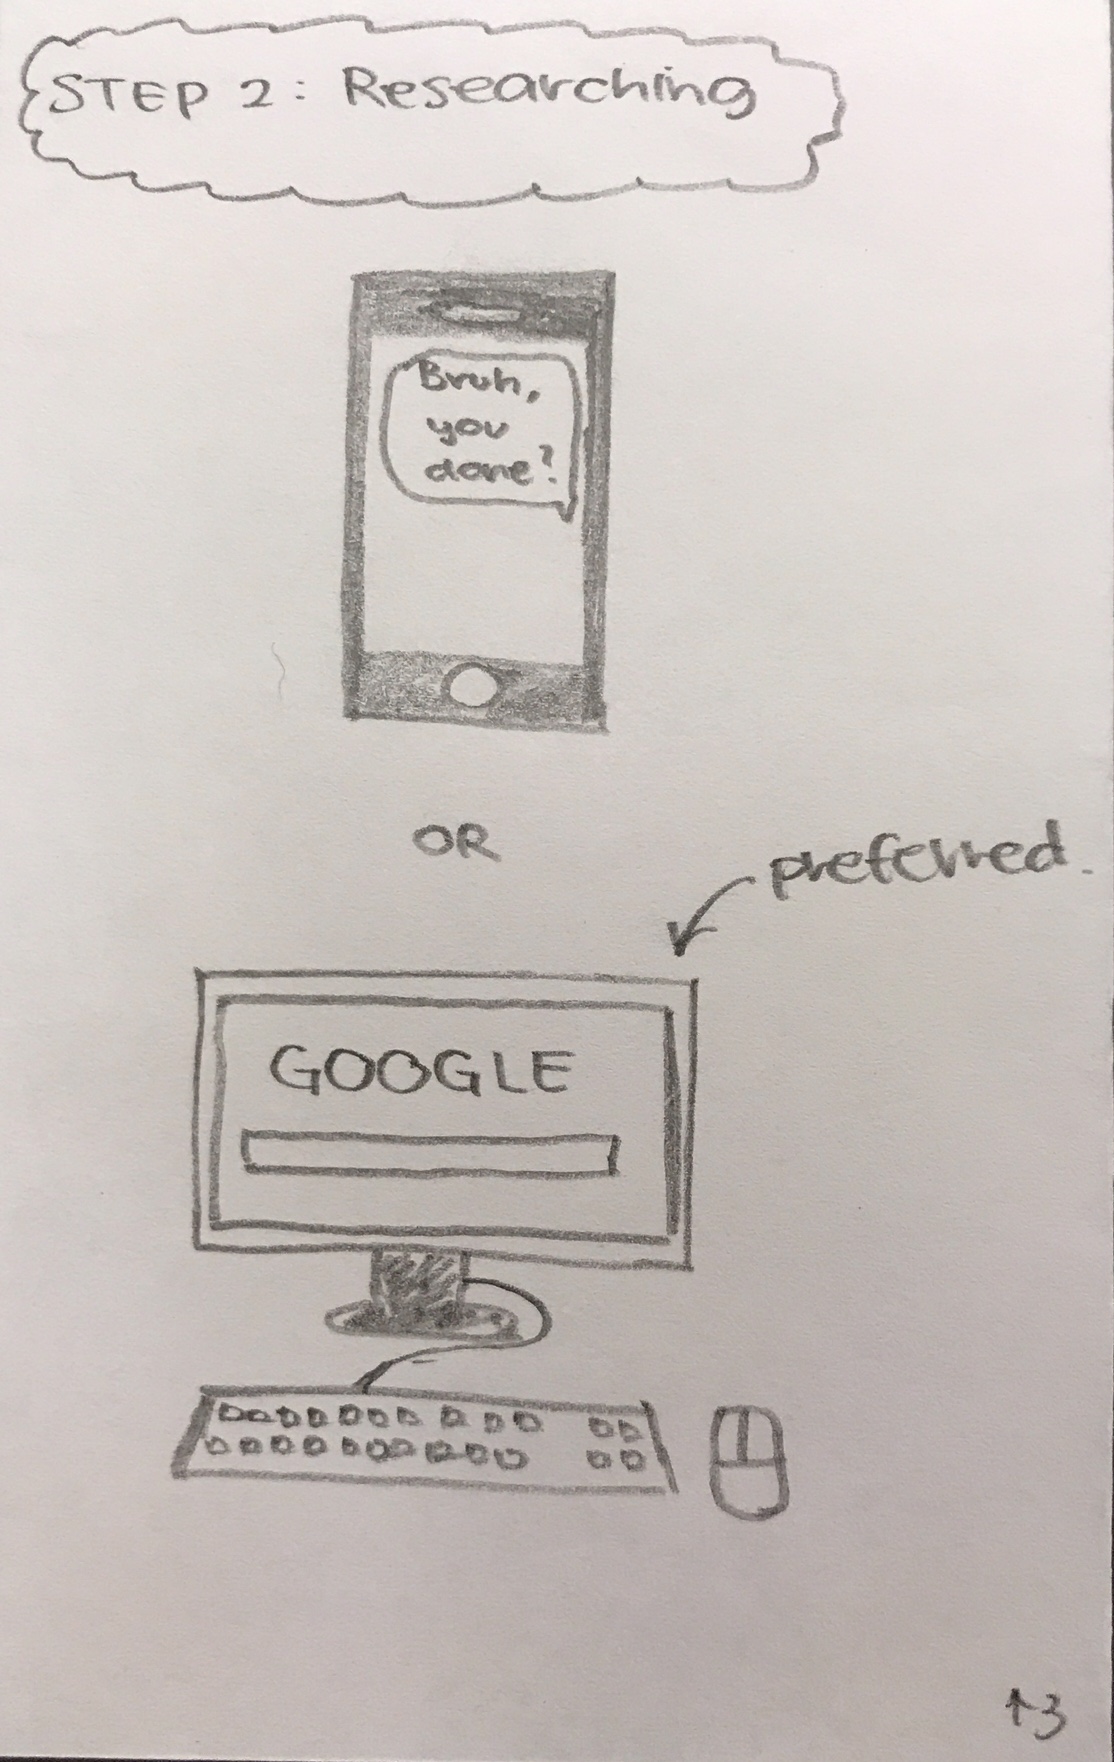 STEP 2: Researching
Bruh,
you
done?
OR
preferred.
GOOGLE
↑3